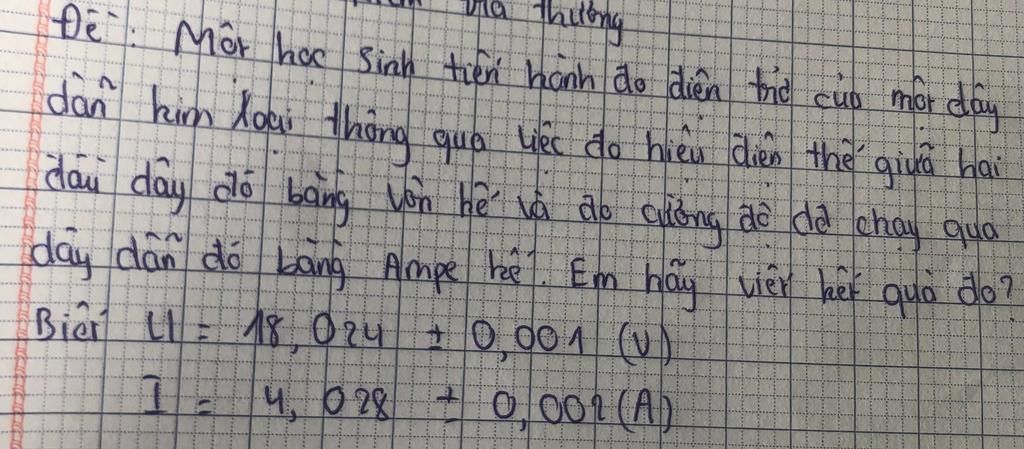 thường
Đề: Một học sinh tiến hành đo điện trở của một dây
dẫn kim loại thông qua việc đo hiệu điện thế giữa hai
đầu dây đó bằng vôn kế và đo cường độ dđ chạy qua
dây dẫn đó bằng Ampe kế. Em hãy viết kết quả đo?
Biết U = 18,024 ± 0,001 (V)
I = 4,028 ± 0,002 (A)